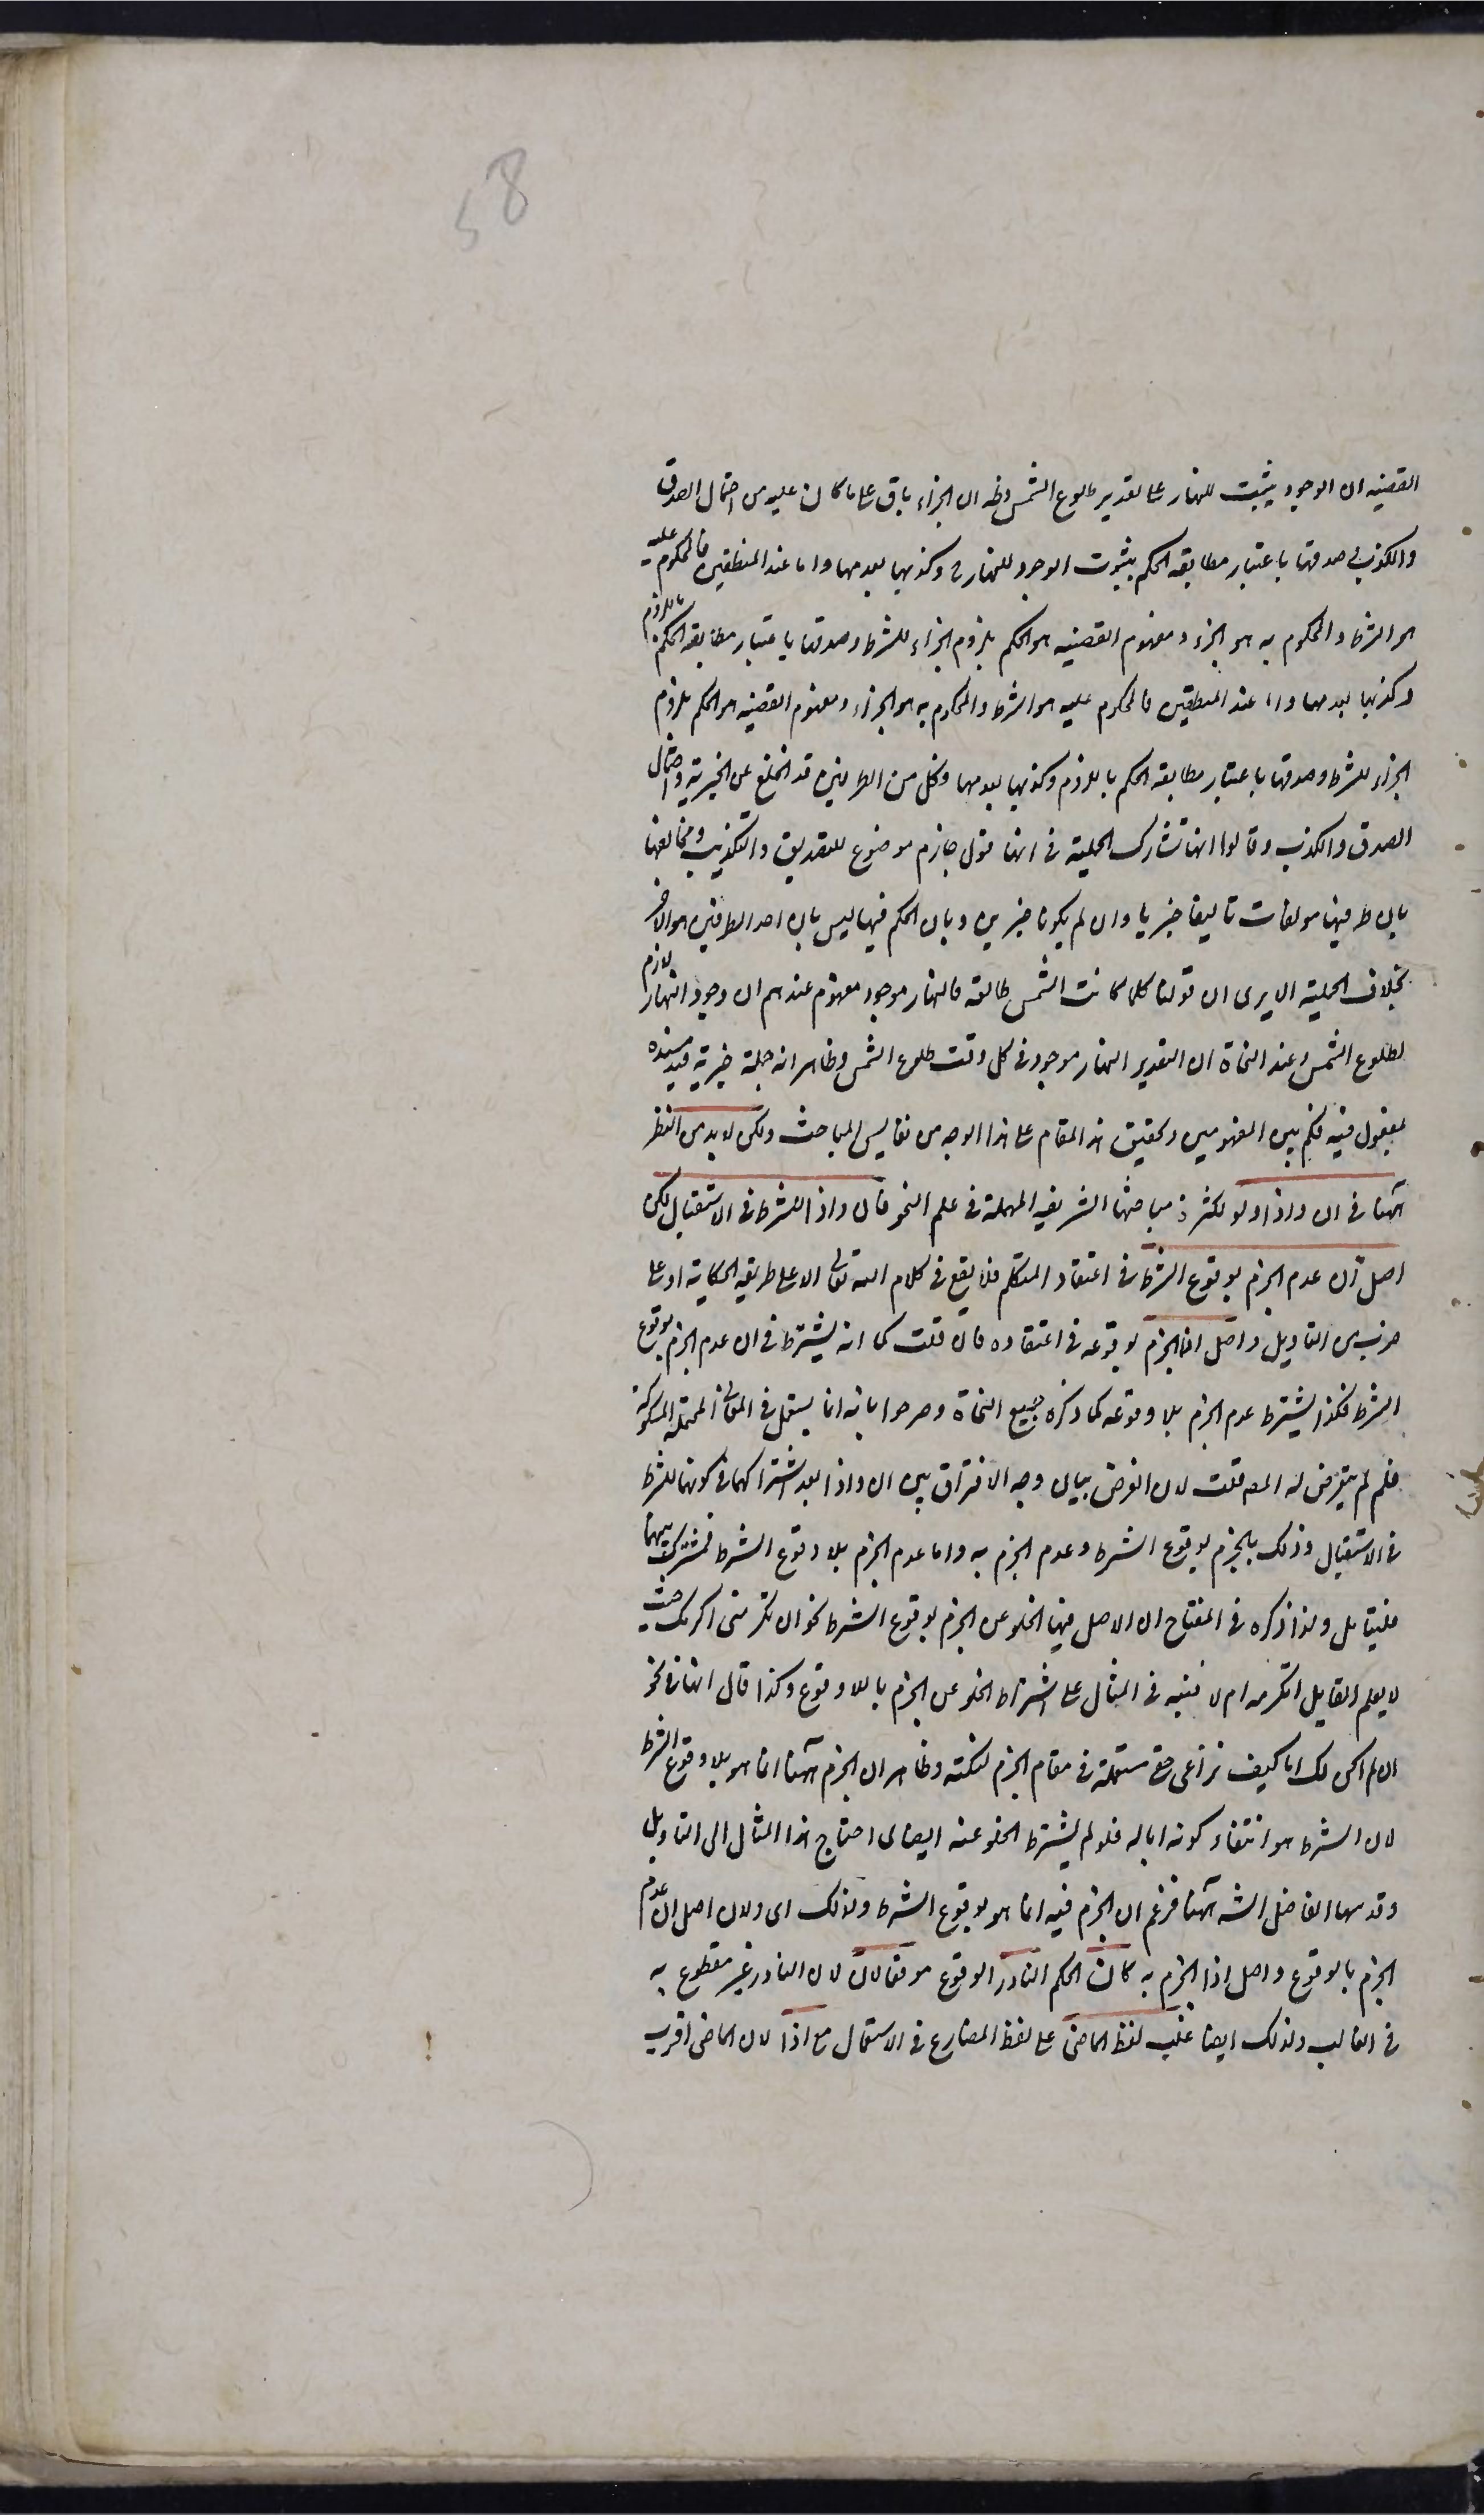 58
القضيه ان الوجود يثبت للنهار على تقدير طلوع الشمس وظ ان الجزاء باق على ما كان عليه من احتمال الصدق
والكذب فصدقها باعتبار مطابقه الحكم بثبوت الوجود للنهار ح وكذبها بعدمها واما عند المنطقين فالمحكوم عليه
هو الشرط والمحكوم به هو الجزاء ومفهوم القضيه هو الحكم بلزوم الجزاء للشرط وصدقها باعتبار مطابقه الحكم باللزوم
وكذبها بعدمها واما عند المنطقين فالمحكوم عليه هو الشرط والمحكوم به هو الجزاء ومفهوم القضيه هو الحكم بلزوم
الجزاء للشرط وصدقها باعتبار مطابقه الحكم باللزوم وكذبها بعدمها وكل من الطرفين قد انخلع عن الخبرية واحتمال
الصدق والكذب وقالوا انها تشارك الحملية في انها قول جازم موضوع للتصديق والتكذيب ومخالفها
بان طرفيها مولفات تاليفا خبريا وان لم يكونا خبرين وبان الحكم فيها ليس بان احد الطرفين هو الاخر
بخلاف الحملية الا يرى ان قولنا كلما كانت الشمس طالعه فالنهار موجود مفهوم عندهم ان وجود النهار لازم
لطلوع الشمس وعند النحاة ان التقدير النهار موجود في كل وقت طلوع الشمس وظاهر انه جملة خبرية قيد مسنده
بمفعول فيه فكم بين المفهومين وتحقيق هذا المقام على هذا الوجه من نفايس المباحث ولكن لا بد من النظر
ههنا في ان واذا ولو لكثرة مباحثها الشريفه المهملة في علم النحو فان واذا للشرط في الاستقبال لكن
اصل ان عدم الجزم بوقوع الشرط في اعتقاد المتكلم فلا يقع في كلام الله تعالى الا على طريقه الحكاية او على
ضرب من التاويل واصل اذا الجزم بوقوعه في اعتقاده فان قلت كما انه يشترط في ان عدم الجزم بوقوع
الشرط فكذا يشترط عدم الجزم بلا وقوعه كما ذكره جميع النحاة وصرحوا بانه انما يستعمل في المعاني المحتملة المشكوكة
فلم لم يتعرض له المصه قلت لان الغرض بيان وجه الافتراق بين ان واذا بعد اشتراكهما في كونهما للشرط
في الاستقبال وذلك بالجزم بوقوع الشرط وعدم الجزم به واما عدم الجزم بلا وقوع الشرط فمشترك بينهما
فليتامل ولذا ذكره في المفتاح ان الاصل فيها الخلو عن الجزم بوقوع الشرط نحو ان تكرمنى اكرمك حيث
لا يعلم القايل اتكرمه ام لا فنبه في المثال على اشتراط الخلو عن الجزم باللا وقوع وكذا قال انها في نحو
ان لم اكن لك ابا كيف تراعى حقى مستعملة في مقام الجزم لنكته وظاهر ان الجزم ههنا انما هو بلا وقوع الشرط
لان الشرط هو انتفاء كونه ابا له فلو لم يشترط الخلو عنه ايضا لما احتاج هذا المثال الى التاويل
وقد سها الفاضل الشه ههنا فزعم ان الجزم فيه انما هو بوقوع الشرط ولذلك اى ولان اصل ان عدم
الجزم بالوقوع واصل اذا الجزم به كان الحكم النادر الوقوع موقعا لان لان النادر غير مقطوع به
في الغالب ولذلك ايضا غلب لفظ الماضى على لفظ المضارع في الاستعمال مع اذا لان الماضى اقرب